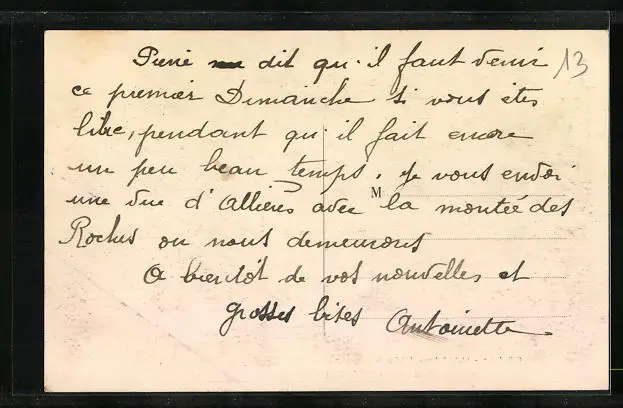 Pierre me dit qu'il faut venir 13
ce premier Dimanche si vous êtes
libre, pendant qu'il fait encore
un peu beau temps. Je vous envoi
M
une vue d'Allières avec la montée des
Roches ou nous demeurons
A bientôt de vos nouvelles et
grosses bises Antoinette